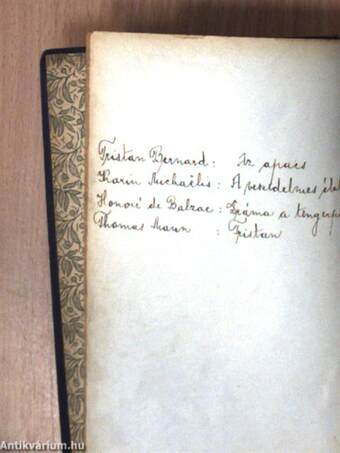 Tristan Bernard: Az apács
Karin Michaëlis: A veszedelmes
Honoré de Balzac: Dráma a
Thomas Mann : Tristan
Antikvárium.hu